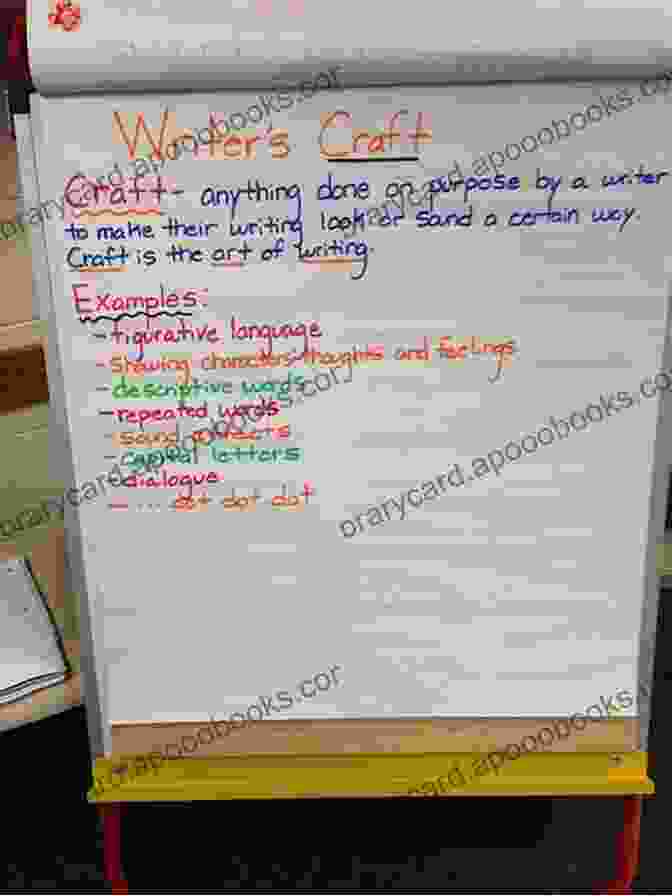 Writer's Craft
Craft- anything done on purpose by a writer
to make their writing look or sound a certain way.
Craft is the art of writing.
Examples:
- figurative language
- Showing characters' thoughts and feelings
- descriptive words
- repeated words
- sound effects
- capital letters
- dialogue
- ... dot dot dot
orarycard.apooobooks.cor
orarycard.apooobooks.cor
orarycard.apooobooks.cor